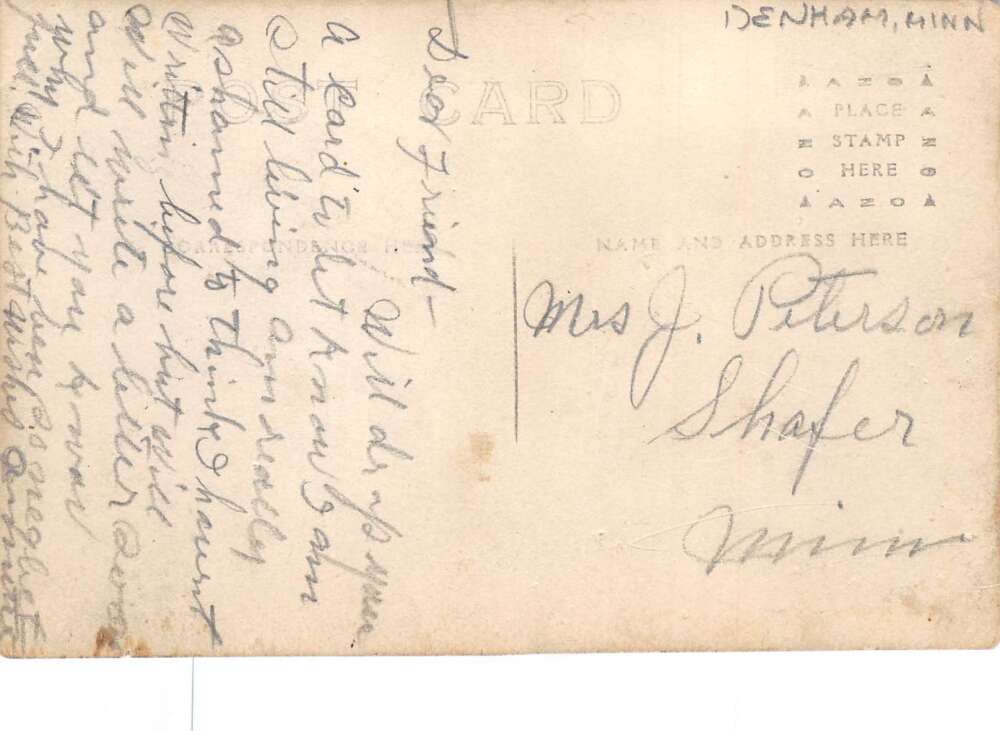 DENHAM, MINN
POST CARD
AZO
PLACE
STAMP
HERE
AZO
CORRESPONDENCE HERE
NAME AND ADDRESS HERE
Mrs J. Peterson
Shafer
Minn
Dear Friend-
Will drop you
a card to let know I am
Still living am really
ashamed to think I havent
written before but will
will write a letter soon
and let you know
why I have been so
With Best wishes